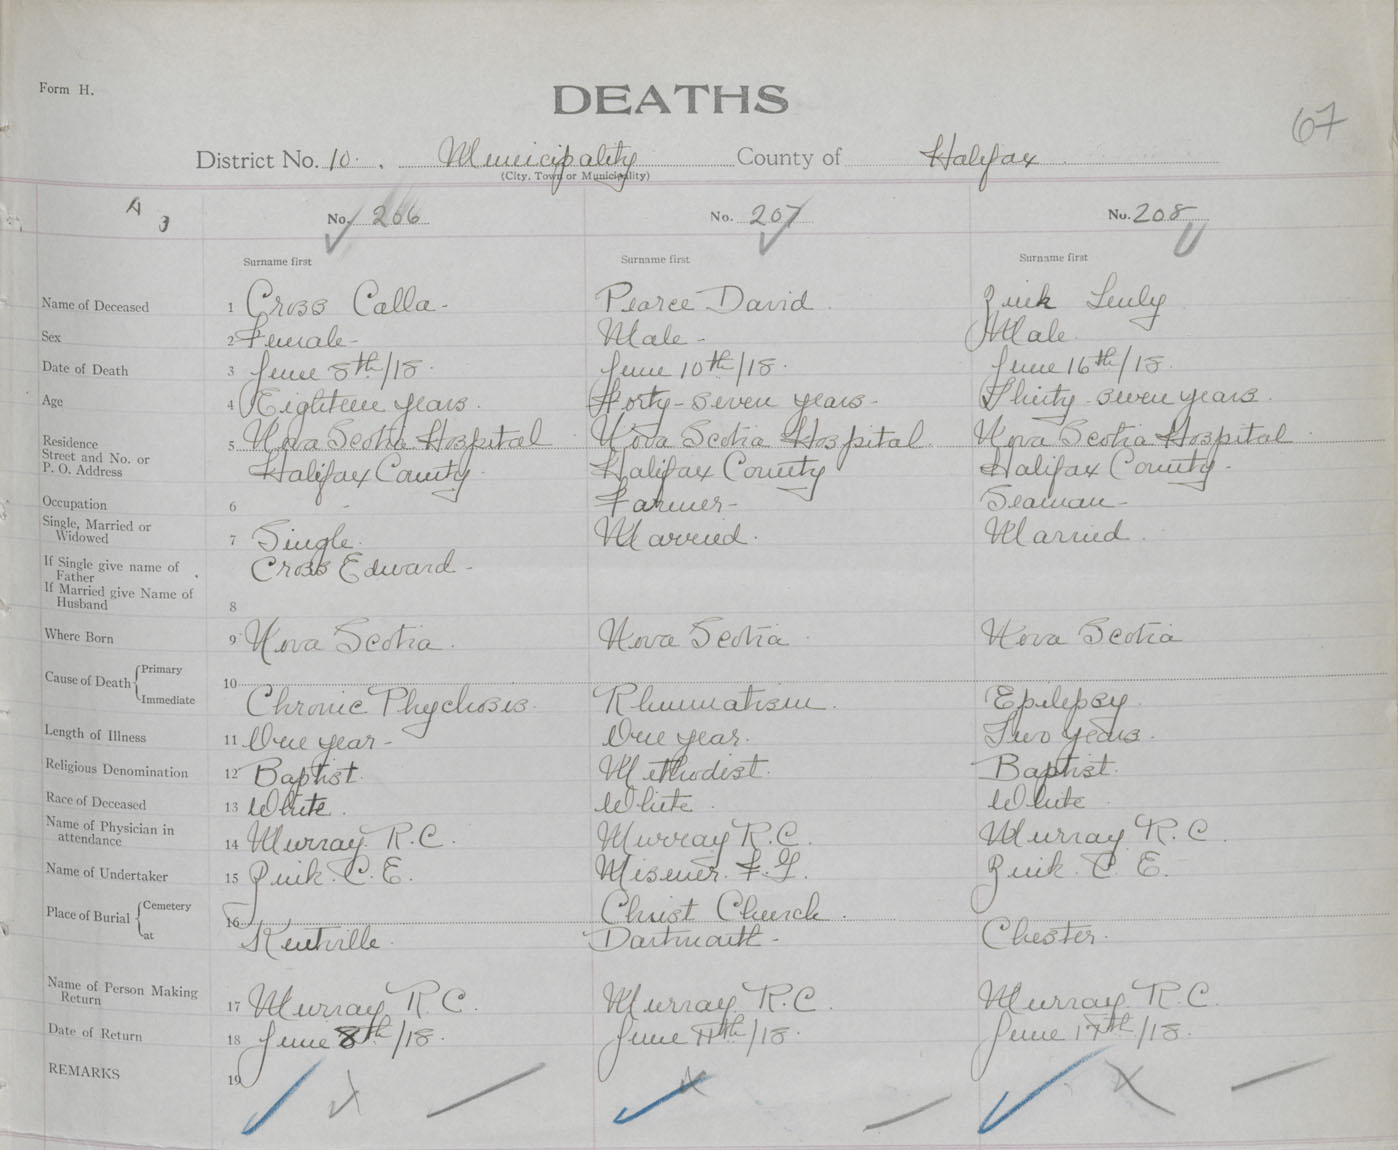 Form H.
DEATHS
67
District No. 10. Municipality County of Halifax
(City, Town or Municipality)
No. 206 No. 207 No. 208
Surname first Surname first Surname first
Name of Deceased 1 Cross Calla - Pearce David. Zink
Sex 2 Female - Male - Male
Date of Death 3 June 8th/18. June 10th/18. June 16th/18.
Age 4 Eighteen years. Forty-seven years - Thirty-seven years.
Residence Street and No. or P. O. Address 5 Nova Scotia Hospital Nova Scotia Hospital Nova Scotia Hospital
Halifax County. Halifax County Halifax County.
Occupation 6 - Farmer - Seaman -
Single, Married or Widowed 7 Single. Married. Married.
If Single give name of Father Cross Edward -
If Married give Name of Husband 8
Where Born 9 Nova Scotia. Nova Scotia Nova Scotia
Cause of Death Primary 10
Immediate Chronic Phychosis. Rhumatism. Epilepsy.
Length of Illness 11 One year - One year. Two years.
Religious Denomination 12 Baptist. Methodist. Baptist.
Race of Deceased 13 White. White. White
Name of Physician in attendance 14 Murray R.C. Murray R.C. Murray R.C.
Name of Undertaker 15 Zink. C. E. Misener. F. G. Zink. C. E.
Place of Burial Cemetery 16 Christ Church.
at Kentville. Dartmouth - Chester.
Name of Person Making Return 17 Murray R.C. Murray R.C. Murray R.C.
Date of Return 18 June 8th/18. June 11th/18. June 17th/18.
REMARKS 19